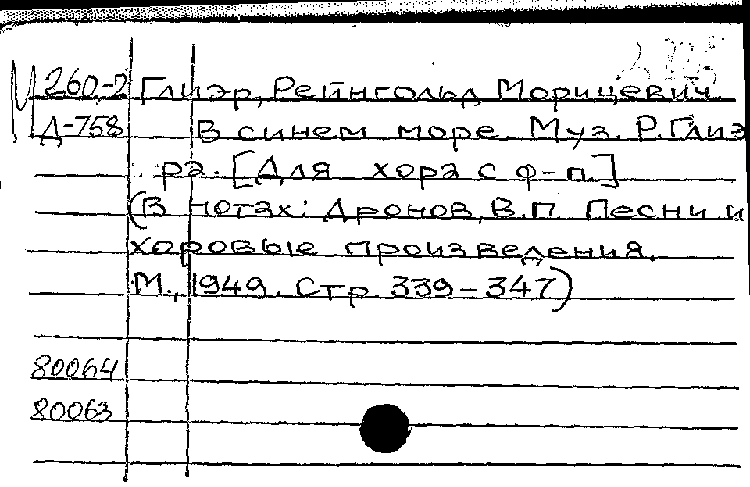 М 260-2 Глиэр, Рейнгольд Морицевич
Д-758 В синем море. Муз. Р. Глиэ
ра. [Для хора с ф-п.]
(В нотах: Дронов, В.П. Песни и
хоровые произведения.
М., 1949. Стр. 339-347)
80064
80063